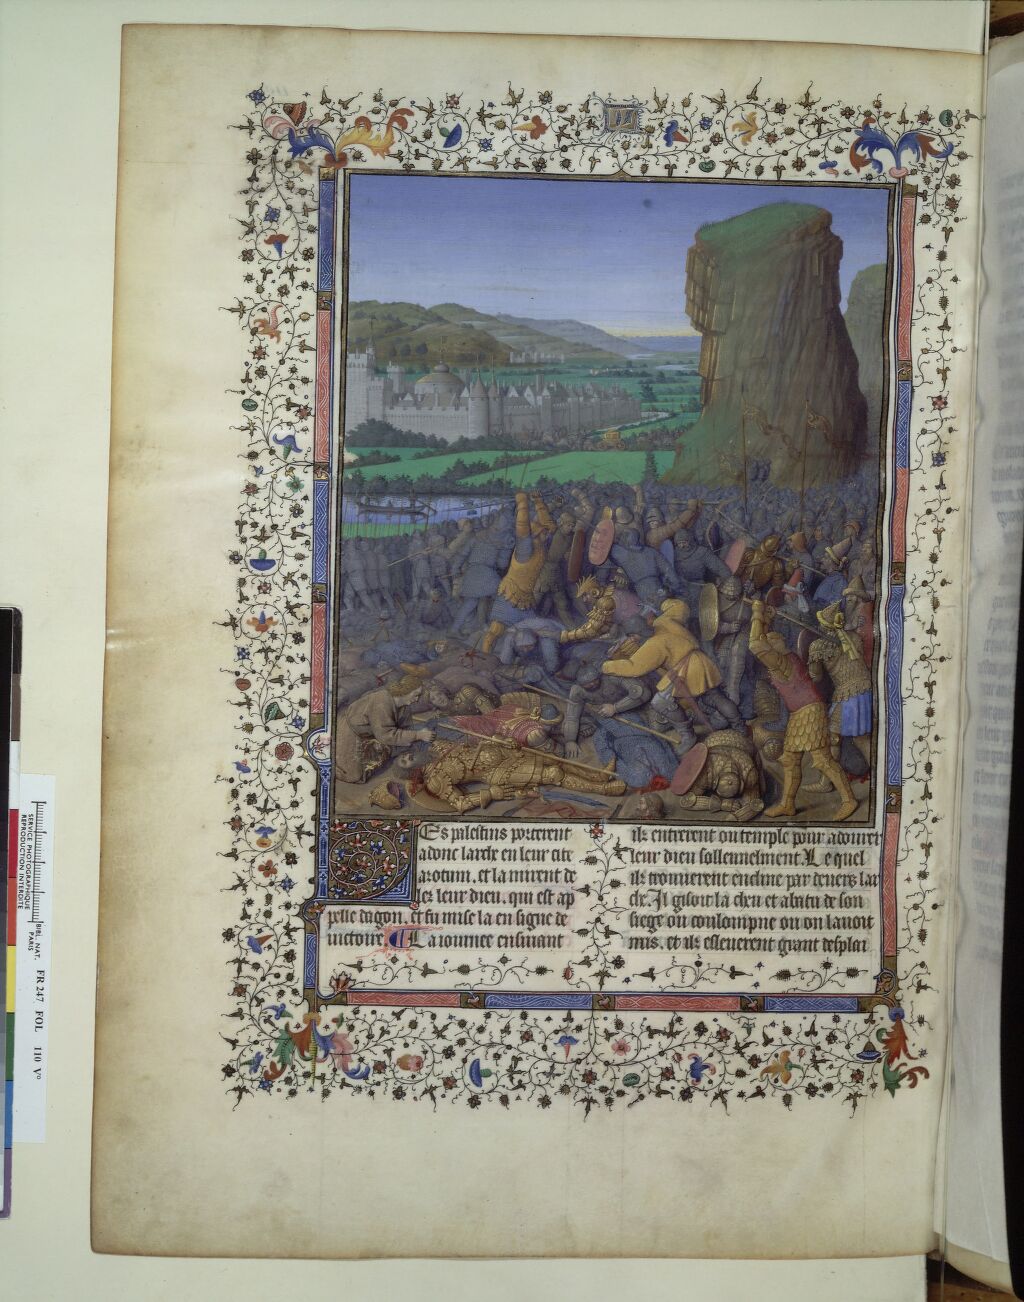 Es palestins porterent
adonc larche en leur cite
azotum. et la mirent de
lez leur dieu. qui est ap
pelle dagon. et fu mise la en signe de
victoire. La iournee ensuiuant
ilz entrerent ou temple pour adourer
leur dieu sollennelment. Le quel
ilz trouuerent encline par deuers lar
che. Il gisoit la cheu et abatu de son
siege ou coulompne ou on lauoit
mis. et ilz esleuerent grant desplai
SERVICE PHOTOGRAPHIQUE
REPRODUCTION INTERDITE
BIBL. NAT.
PARIS
FR 247 FOL 110 Vº